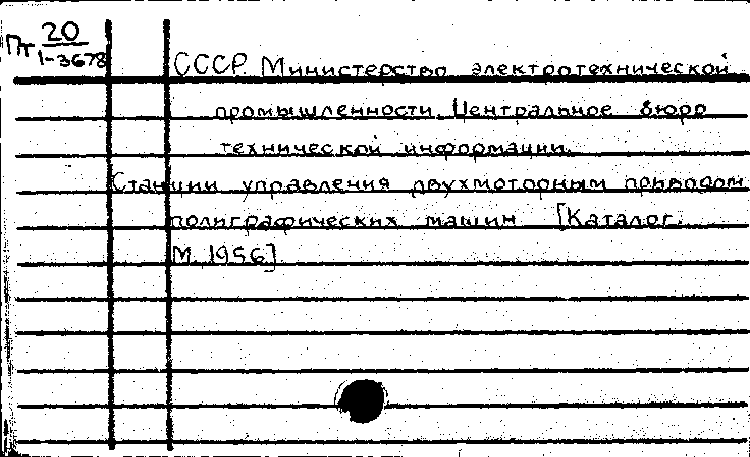 Пт 20
1-3678
СССР. Министерство электротехнической
промышленности. Центральное бюро
технической информации.
Станции управления двухмоторным приводом
полиграфических машин [Каталог.
М. 1956]